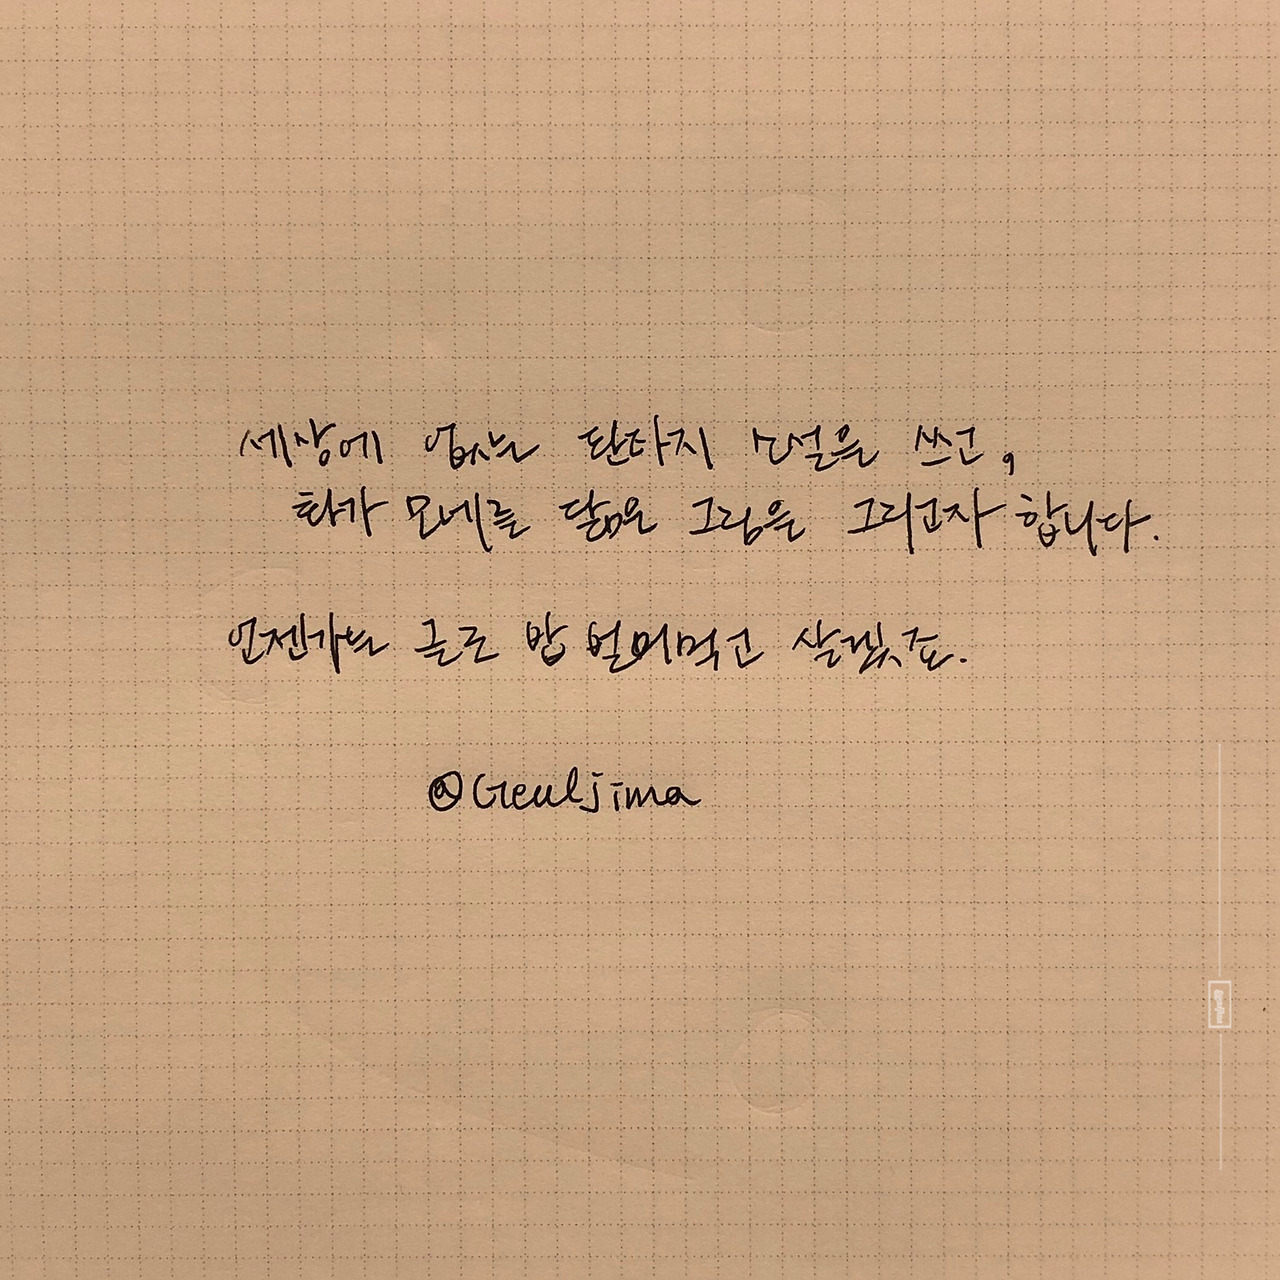 세상에 없는 판타지 소설을 쓰고,
화가 모네를 닮은 그림을 그리고자 합니다.
언젠가는 글로 밥 벌어먹고 살겠죠.
@Geuljima